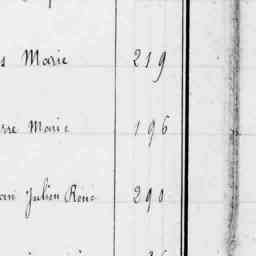 s Marie 219
rre Marie 196
an Julien René 290